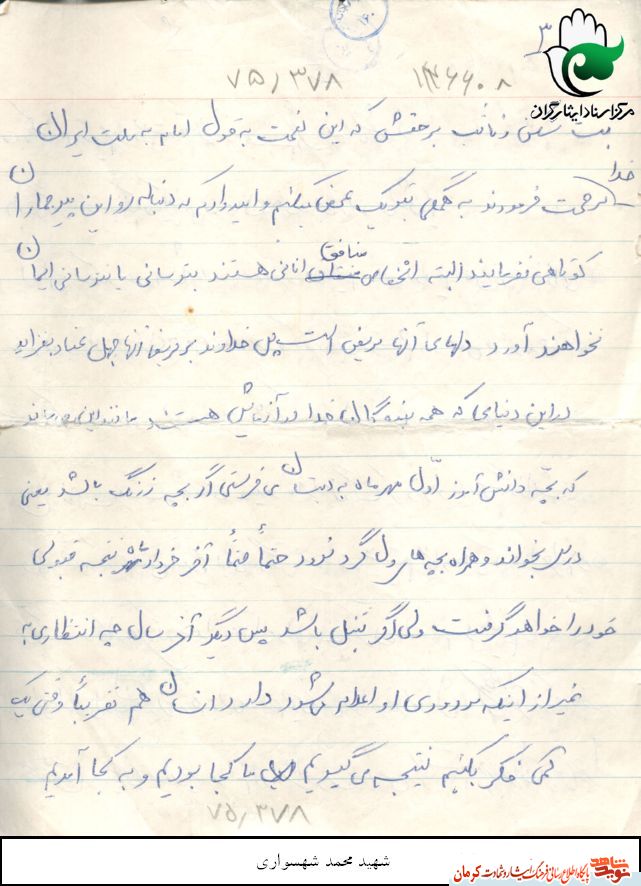 ۳
مرکز اسناد ایثارگران
۷۵/۳۷۸
۱۴۶۶۰۸
نائب برحقش که این نعمت به قول امام به ملت ایران
خدا
مرحمت فرمودند به همگی تبریک عرض میکنم و امیدوارم که دنباله رو این پیر جماران
کوتاهی نفرمایند البته اشخاص منافق اناني هستند بترسانی یا نترسانی ایمان
نخواهند آورد دلهای آنها مریض است پس خداوند بر مریضی آنها جهل عناد بفزاید
در این دنیای که همه بنده گان خدا در آزمایش هستند مانند این می ماند
که بچه دانش آموز اول مهرماه به دبستان می فرستی اگر بچه زرنگ باشد یعنی
درس بخواند و همراه بچه های ول گرد نرود حتماً حتماً آخر خرداد نتیجه قبولی
خود را خواهد گرفت ولی اگر تنبل باشد پس دیگر آخر سال چه انتظاری به
غیر از اینکه مردودی او اعلام می شود دارد انسان هم تقریباً وقتی یک
کمی فکر بکنیم نتیجه می گیریم ما کجا بودیم و به کجا آمدیم
۷۵/۳۷۸
شهید محمد شهسواری
نوید شاهد
پایگاه اطلاع رسانی فرهنگ ایثار و شهادت کرمان